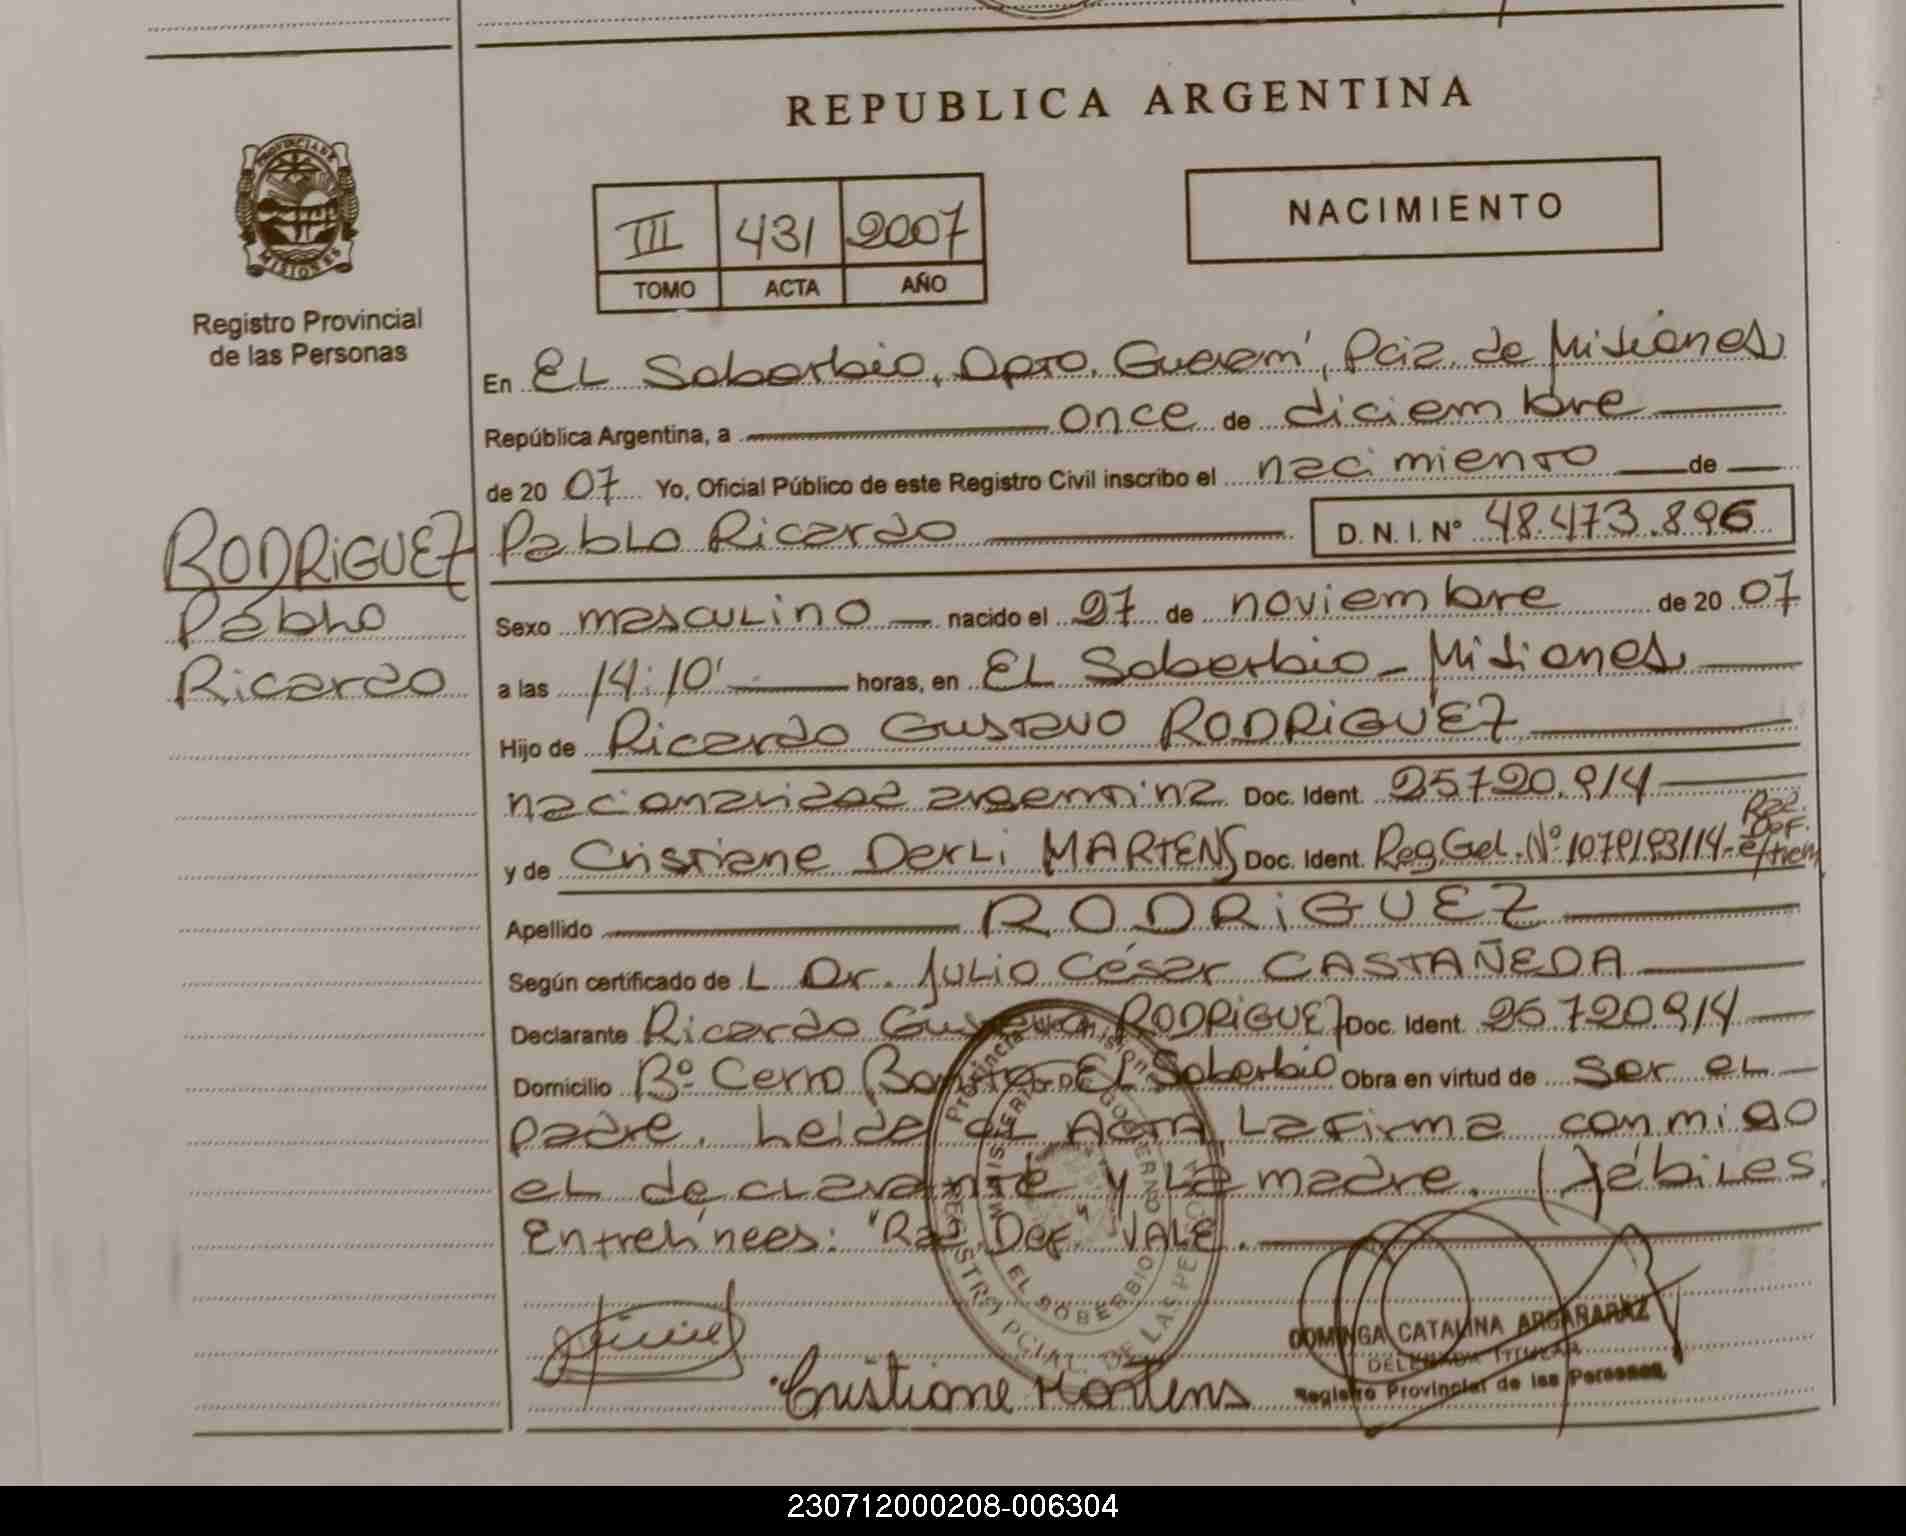 REPUBLICA ARGENTINA
PROVINCIA DE
MISIONES
Registro Provincial
de las Personas
III 431 2007
TOMO ACTA AÑO
NACIMIENTO
En EL Soberbio, Dpto. Guaraní, Pcia. de Misiones
República Argentina, a once de diciembre
de 2007 Yo, Oficial Público de este Registro Civil inscribo el nacimiento de
RODRIGUEZ
Pablo
Ricardo
Pablo Ricardo D.N.I. Nº 48.473.896
Sexo masculino nacido el 27 de noviembre de 2007
a las 14:10' horas, en EL Soberbio - Misiones
Hijo de Ricardo Gustavo RODRIGUEZ
nacionalidad argentina Doc. Ident. 25.720.914
y de Cristiane Derli MARTENS Doc. Ident. Reg. Gel. Nº
Apellido RODRIGUEZ
Según certificado de L Dr. Julio César CASTAÑEDA
Declarante Ricardo Gustavo RODRIGUEZ Doc. Ident. 25.720.914
Domicilio Bº Cerro Bonito - EL Soberbio Obra en virtud de ser el
padre. Leida el Acta, La firma conmigo
el declarante y La madre.
Entrelíneas: "Rad. Def." VALE.
Provincia de Misiones
MINISTERIO DE GOBIERNO
REGISTRO PCIAL. DE LAS PERSONAS
EL SOBERBIO
Cristiane Martens
DOMINGA CATALINA ARGAÑARAZ
DELEGADA TITULAR
Registro Provincial de las Personas
230712000208-006304